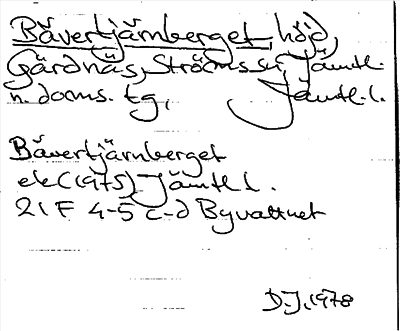 Bävertjärnberget, höjd,
Gärdnäs, Ströms sn, Jämtl.
n. doms. tg, Jämtl. l.
Bävertjärnberget
ek (1975) Jämtl l.
21 F 4-5 c-d Byvattnet
D.J. 1978